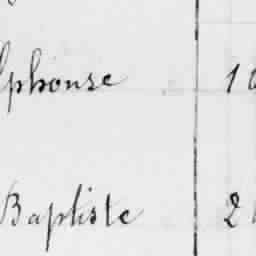 lphonse 1
Baptiste 2